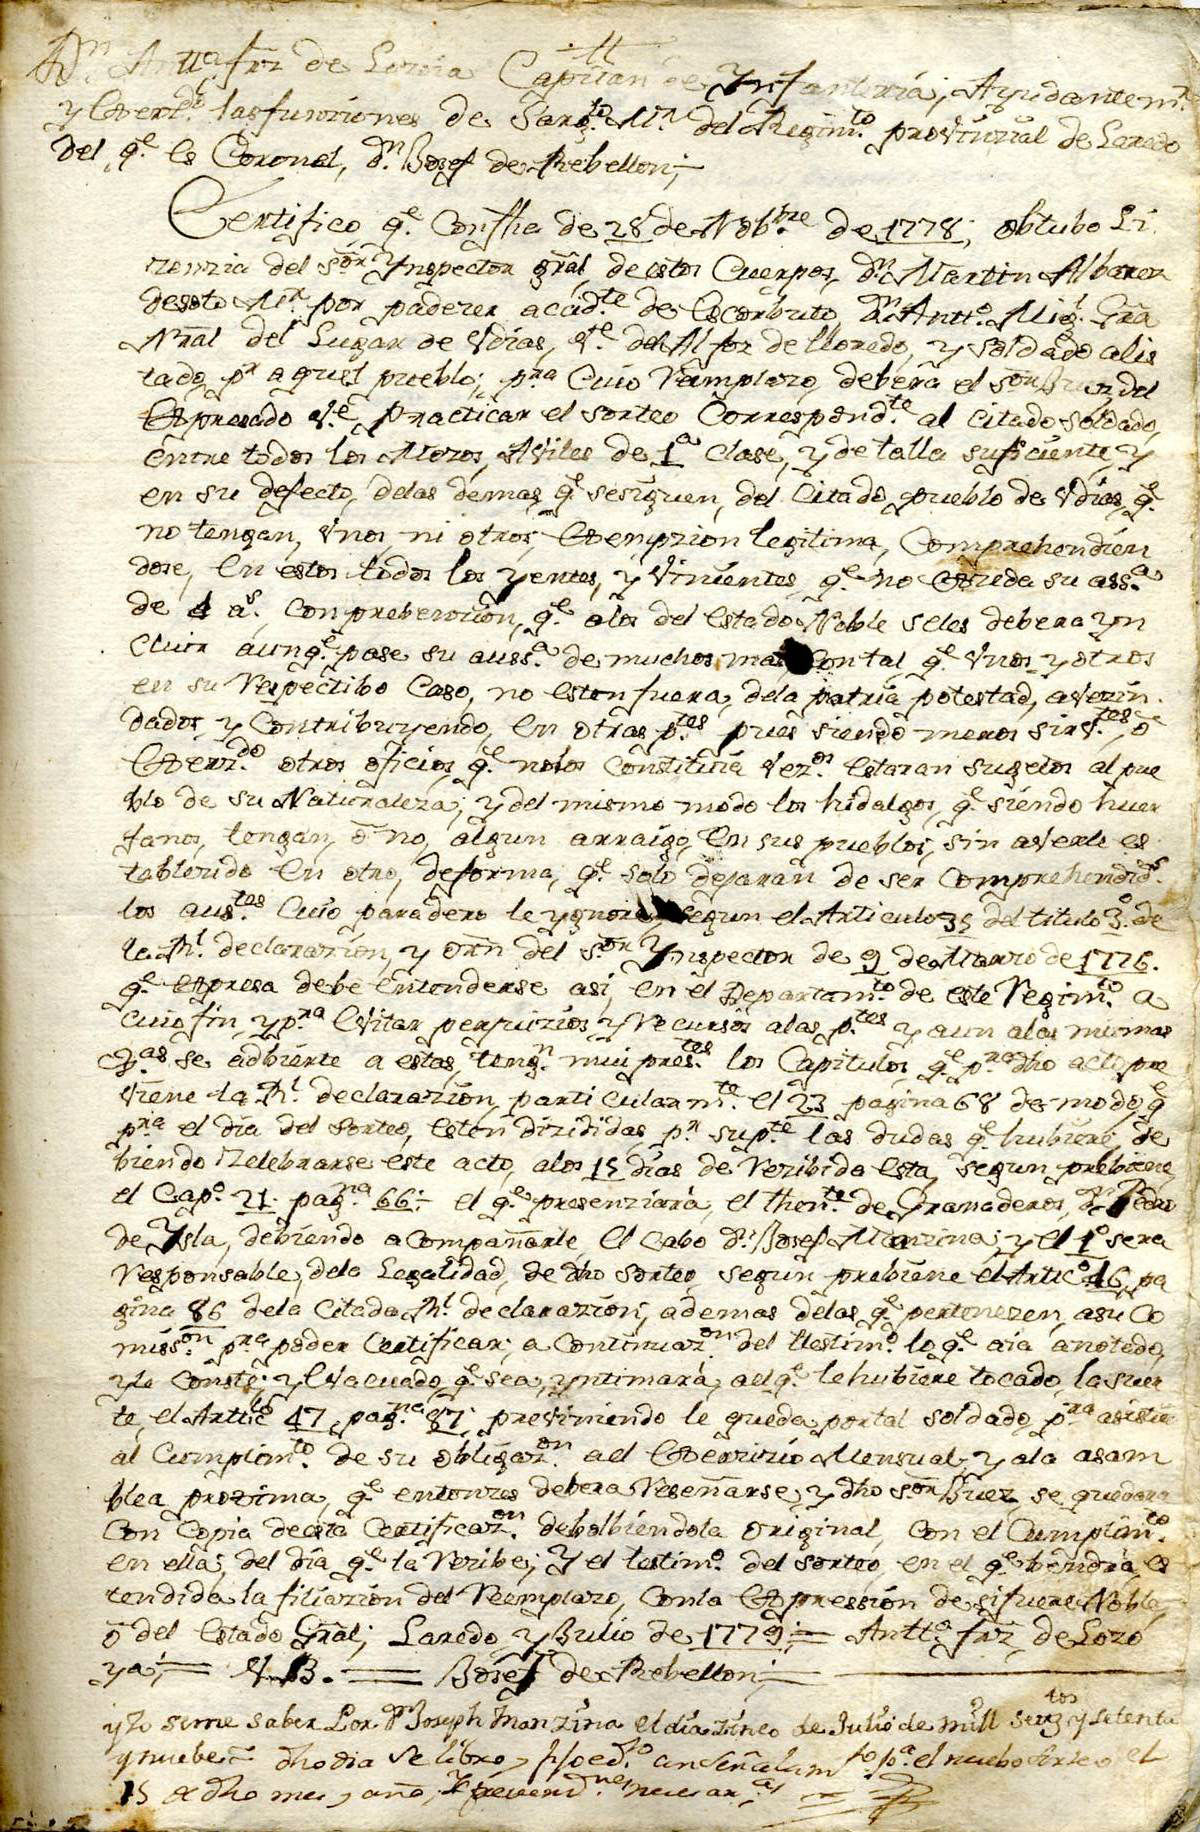 Dn. Antto. frz de Loria Capitan de Ynfanteria, Ayudante mr.
y Exerzdo. las funziones de Sargto. Mr. del Regimto. provinzial de Laredo
del qe. es Coronel, dn. Josef de Rebellon;
Certifico qe. Con fha de 28 de Nobbre. de 1778, obtubo Li
zenzia del Sor. Ynspector gral, de estos Cuerpos, dn. Martin Albarez
de soto Mr. por padezer accidte. de escorbuto, dn. Antto. Migl. Gra
Nral del Lugar de Vdias, Ve. del Alfoz de lloredo, y soldado alis
tado pr. aquel pueblo; pra. Cuio Remplazo, debera el Sor. Juez del
Expresado Ve. practicar el sorteo Correspondte. al Citado soldado,
entre todos los Mozos, Aviles de 1a. Clase, y de talla suficiente, y
en su defecto, delas demas qe. se siguen, del Citado pueblo de Vdias, qe.
no tengan, Vnos, ni otros, Exempzion legitima, Comprehendien
dose, en estos todos los yentes, y Vinientes, qe. no Exzeda su ausa.
de 4 as. con prebenzion, qe. a los del Estado Noble seles debera yn
Cluir aunqe. pase su aussa. de muchos mas, Con tal, qe. Vnos y otros
en su Respectibo Caso, no esten fuera, dela patria potestad, avezin
dados, y Contribuyendo, en otras ptes. pues siendo meros sirvtes. ó
Exerzdo. otros oficios, qe. no los Constituia Vezon. estaran sugetos al pue
blo de su Naturaleza; y del mismo modo los hidalgos, qe. siendo huer
fanos, tengan, ó no, algun arraigo, en sus pueblos, sin averle es
tablezido en otro, deforma, qe. solo dejaran de ser Comprehendids.
los austes. Cuio paradero se ygnore segun el Articulo 35 del titulo 3o. de
la Rl. declarazion, y orn del Sor. Ynspector de 9 de Marzo de 1776.
qe. expresa debe entenderse asi, en el Departamto. de este Regimto. a
Cuio fin, y pra. Evitar perjuizios, y Recursos alas ptes. y aun a las mismas
se adbierte a estas, tengn. mui prestes. los Capitulos, qe. pra. dho acto pre
viene la Rl. declarazion, particularmte. el 23 pagina 68 de modo, qe.
pra. el dia del sorteo, esten dizididas pr. su pte. las dudas qe. hubiere, de
biendo Zelebrarse este acto, a los 15 dias de Rezibida esta, segun prebiene
el Capo. 21. pagna. 66: el qe. presenziará, el thente. de Granaderos, dn. Pedro
de Ysla, debiendo acompañarle, el Cabo dn. Josef Manzina; y el 1o. sera
Responsable, dela Legalidad, de dho sorteo, segun prebiene el Artico. 46, pa
gina 86 dela Citada Rl. declarazion, ademas delas qe. pertenezen, a su Co
misson. pra. poder Certificar, a Continuazon. del testimo. lo qe. aia anotado,
y le Conste; y Evacuado qe. sea, yntimará, a el qe. le hubiere tocado, la suer
te, el Articlo. 47, pagna. 87; previniendo le queda por tal soldado, pra. asistir
al Cumplimto. de su obligazon. a el Exerzizio Mensual y ala asam
blea proxima, qe. entonzes debera Reseñarse, y dho Sor. Juez se quedara
Con Copia de esta Certificazon. debolbiendola original, Con el Cumplimto.
en ella, del dia qe. la Rezibe; Y el testimo. del sorteo, en el qe. bendra, es
tendida la filiazion del Reemplazo, Con la Expression de si fuere Noble,
ó del Estado Gral; Laredo, y Julio de 1779;= Antto. frz de Lozo
ya;= V.B. = Josef de Rebellon;=
y lo seme saber Por dn. Joseph Manzina el dia Zinco de Julio de mill setezos y setenta
y nuebe = dho dia se libro, el nuebo sorteo el
15 de dho mes, y año,